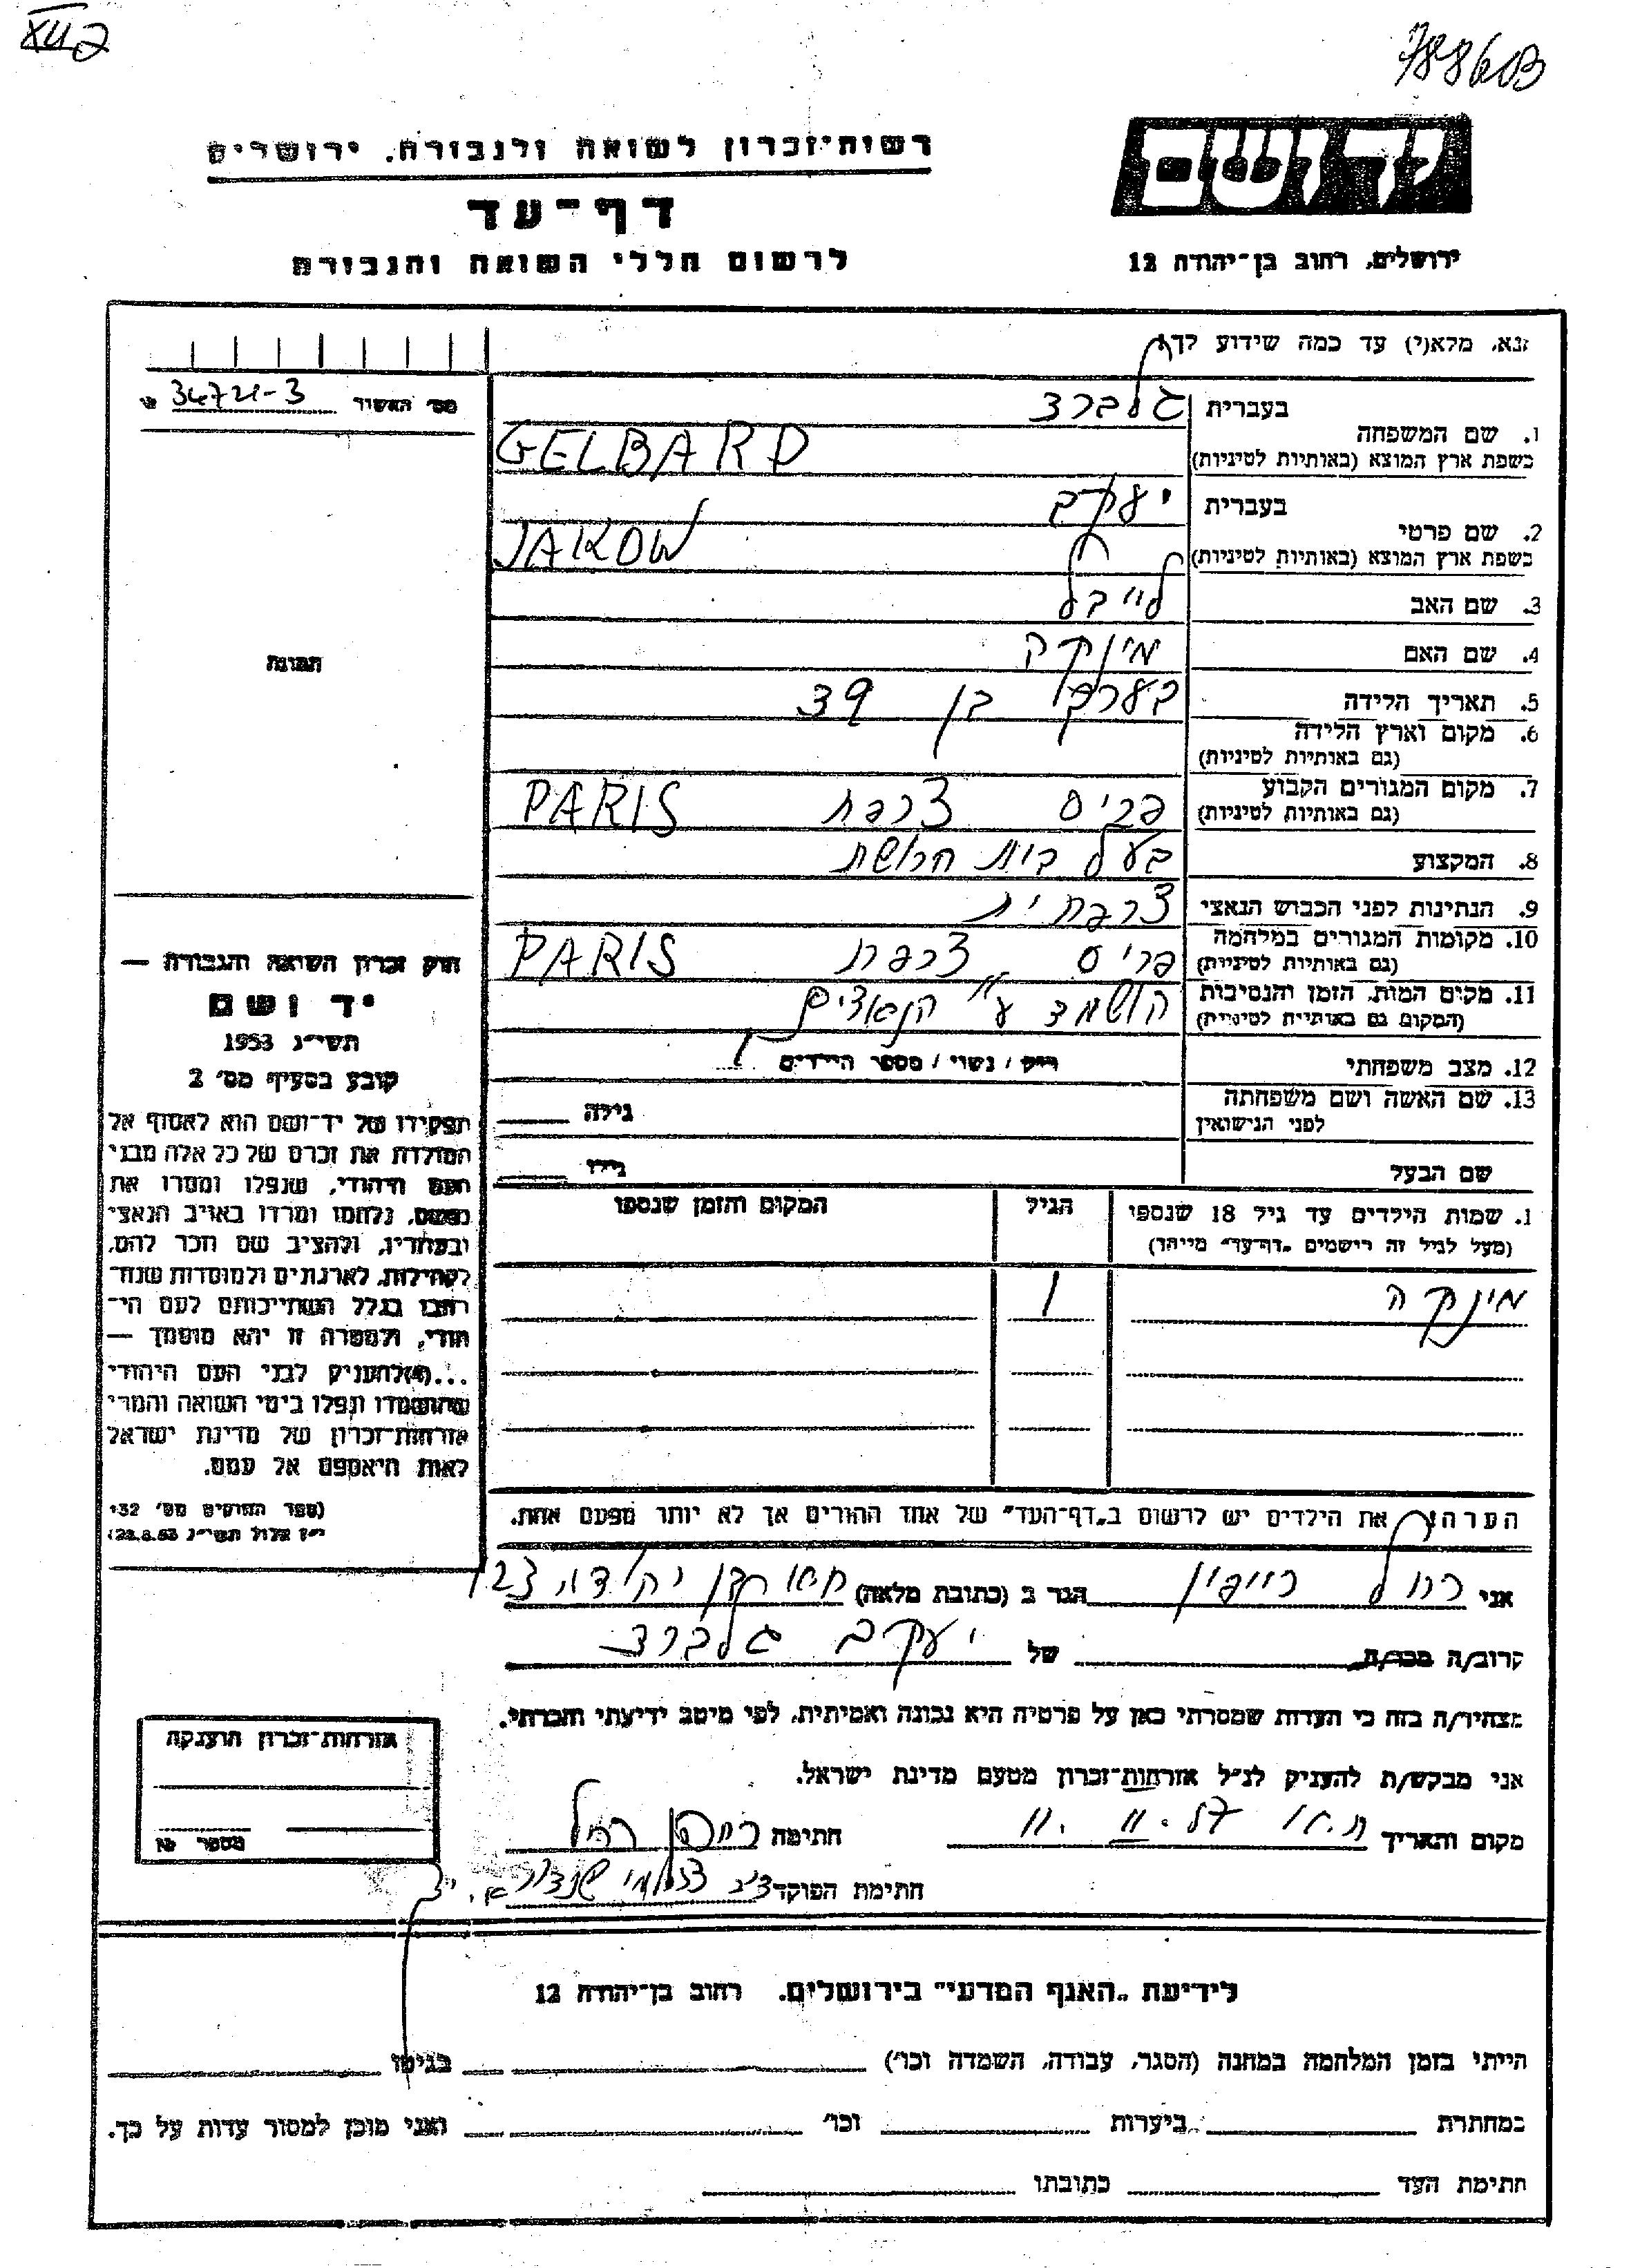 78860B
יד ושם
ירושלים, רחוב בן־יהודה 12
רשות־זכרון לשואה ולגבורה, ירושלים
דף־עד
לרשום חללי השואה והגבורה
נא, מלא(י) עד כמה שידוע לך
מס' האשיר 34721-3
בעברית גלברד
1. שם המשפחה
בשפת ארץ המוצא (באותיות לטיניות) GELBARD
בעברית יעקב
2. שם פרטי
בשפת ארץ המוצא (באותיות לטיניות) JAKOW
3. שם האב לייבל
4. שם האם מינקה
5. תאריך הלידה בערך בן 39
6. מקום וארץ הלידה
(גם באותיות לטיניות)
7. מקום המגורים הקבוע
(גם באותיות לטיניות) פריס צרפת PARIS
8. המקצוע בעל בית חרושת
9. הנתינות לפני הכבוש הנאצי צרפתית
10. מקומות המגורים במלחמה
(גם באותיות לטיניות) פריס צרפת PARIS
11. מקום המות, הזמן והנסיבות
(המקום גם באותיות לטיניות) הושמד ע"י הנאצים
12. מצב משפחתי רווק / נשוי / מספר הילדים 1
13. שם האשה ושם משפחתה
לפני הנישואין גילה
שם הבעל גילו
1. שמות הילדים עד גיל 18 שנספו הגיל המקום והזמן שנספו
(מעל לגיל זה רישמים „דף־עד" מייחד)
מינקה 1
תמונה
חוק זכרון השואה והגבורה —
יד ושם
תשי"ג 1953
קובע בסעיף מס' 2
תפקידו של יד־ושם הוא לאסוף אל
המולדת את זכרם של כל אלה מבני
העם היהודי, שנפלו ומסרו את
נפשם, נלחמו ומרדו באויב הנאצי
ובעוזריו, ולהציב שם וזכר להם,
לקהילות, לארגונים ולמוסדות שנח־
רבו בגלל השתייכותם לעם הי־
הודי, ולמטרה זו יהא מוסמך —
...(4) להעניק לבני העם היהודי
שהושמדו ונפלו בימי השואה והמרי
אזרחות־זכרון של מדינת ישראל
לאות היאספם אל עמם.
(ספר החוקים מס' 132
י"ז אלול תשי"ג 28.8.53)
הערה: את הילדים יש לרשום ב„דף־העד" של אחד ההורים אך לא יותר מפעם אחת.
אני רחל הגר ב (כתובת מלאה)
קרוב/ה מכר/ה של יעקב גלברד
מצהיר/ה בזה כי העדות שמסרתי כאן על פרטיה היא נכונה ואמיתית, לפי מיטב ידיעתי והכרתי.
אני מבקש/ת להעניק לנ"ל אזרחות־זכרון מטעם מדינת ישראל.
מקום והתאריך חתימה
חתימת הפוקד
אזרחות־זכרון הוענקה
מספר
לידיעת „האגף המדעי" בירושלים, רחוב בן־יהודה 12
הייתי בזמן המלחמה במחנה (הסגר, עבודה, השמדה וכו') בגיטו
במחתרת ביערות וכו' ואני מוכן למסור עדות על כך.
חתימת העד כתובתו